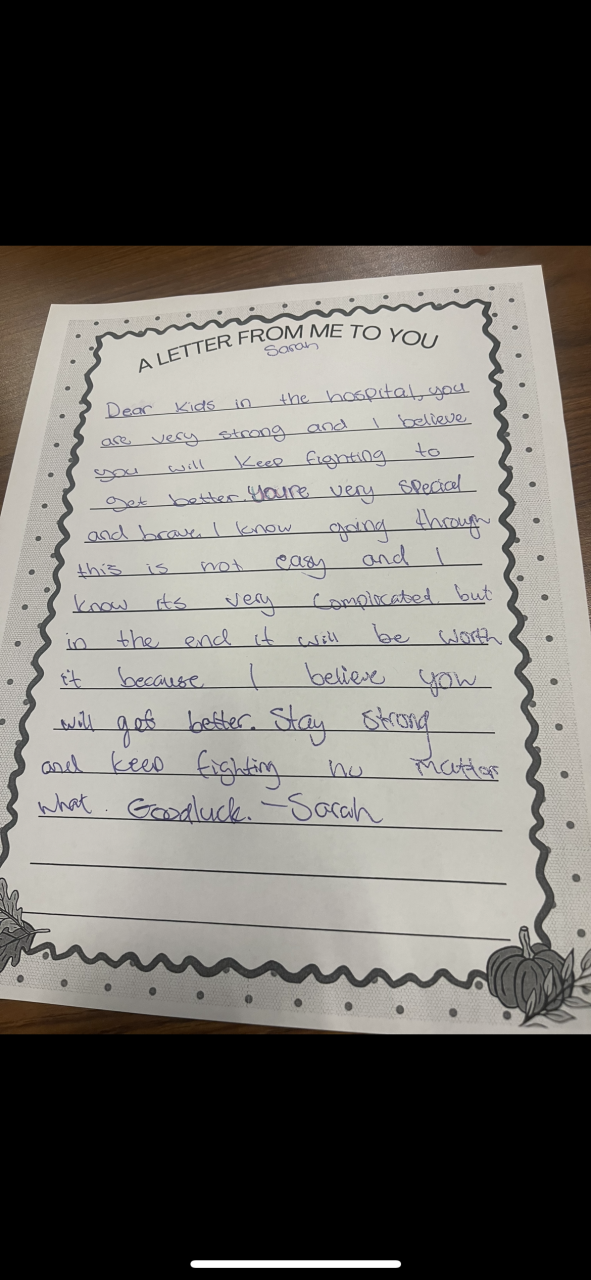 A LETTER FROM ME TO YOU
Sarah
Dear kids in the hospital, you
are very strong and I believe
you will keep fighting to
get better. Youre very special
and brave. I know going through
this is not easy and I
know its very complocated but
in the end it will be worth
it because I believe you
will get better. Stay strong
and keep fighting no matter
what. Goodluck. -Sarah